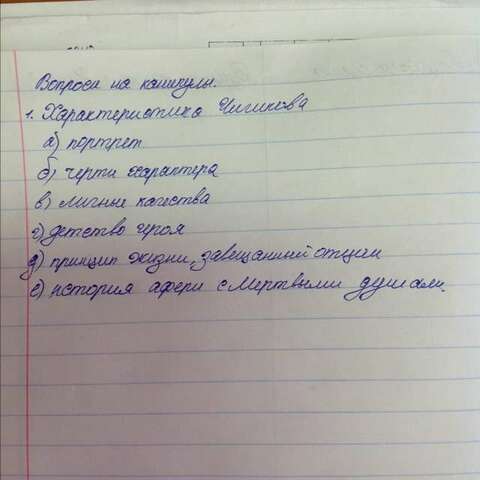 Вопросы на каникулы.
1. Характеристика Чичикова
а) портрет
б) черты характера
в) личные качества
г) детство героя
д) принцип жизни, завещанный отцом
е) история аферы с мертвыми душами.